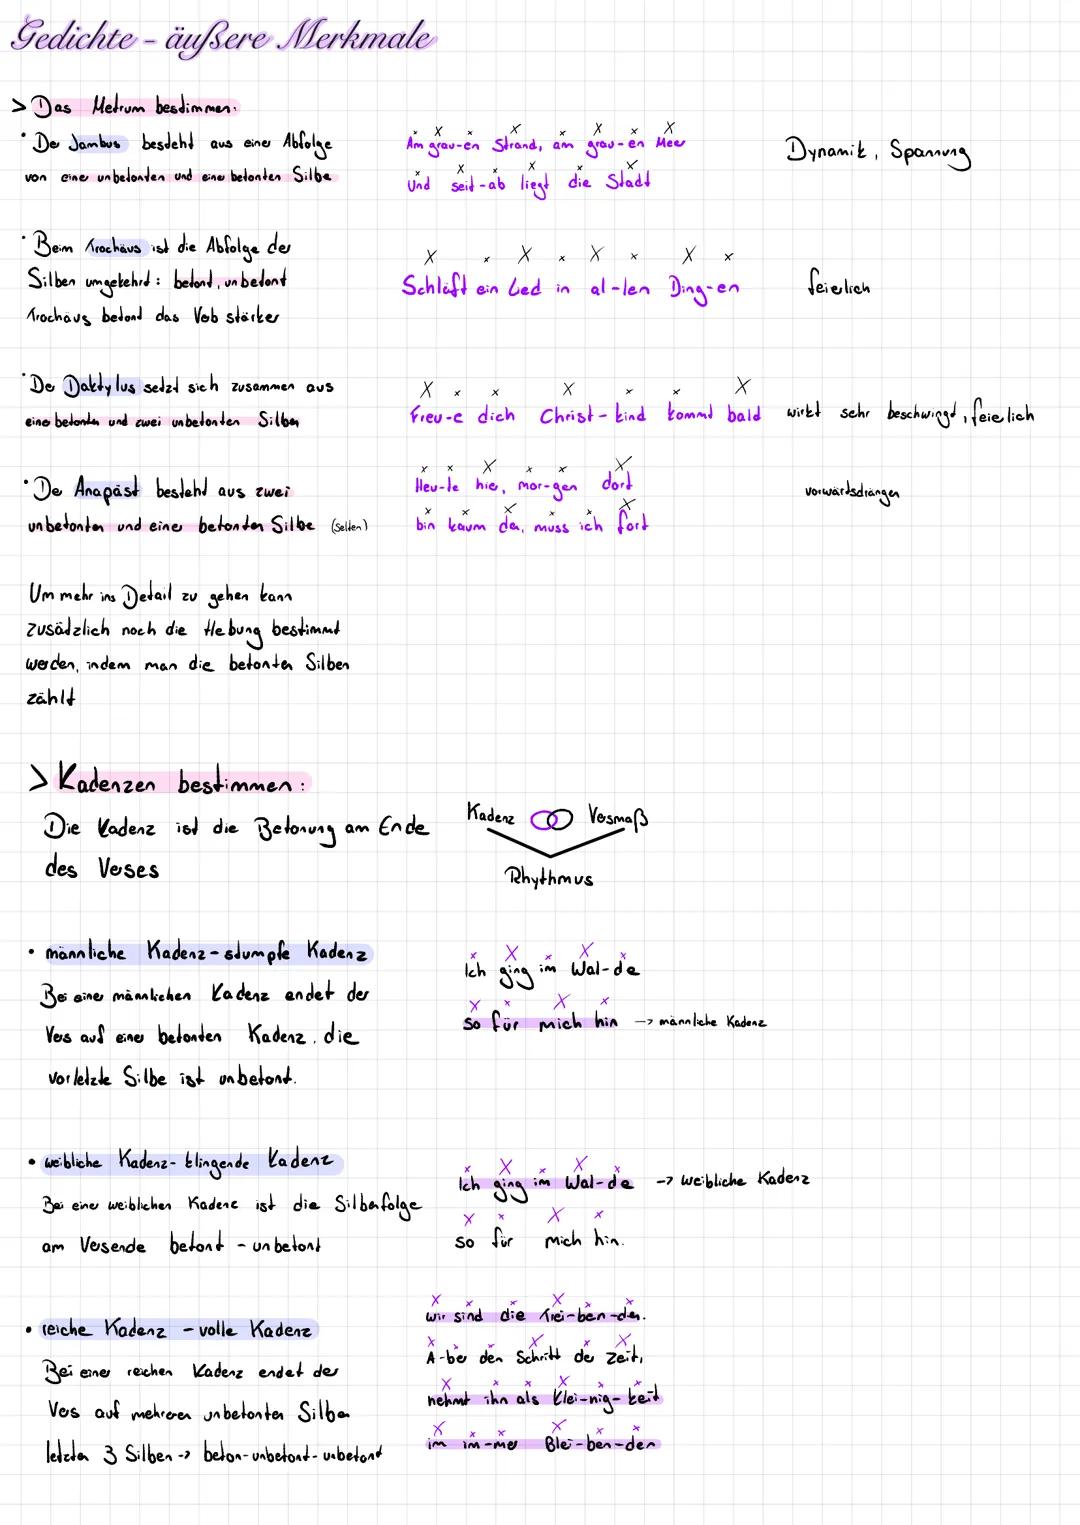 Gedichte - äußere Merkmale
> Das Metrum bestimmen:
· Der Jambus besteht aus einer Abfolge
von einer unbetonten und einer betonten Silbe
Am grau-en Strand, am grau-en Meer
Und seit-ab liegt die Stadt
Dynamik, Spannung
· Beim Trochäus ist die Abfolge der
Silben umgekehrt: betont, unbetont
Trochäus betont das Verb stärker
Schläft ein Lied in al-len Ding-en
feierlich
· Der Daktylus setzt sich zusammen aus
einer betonten und zwei unbetonten Silben
Freu-e dich Christ-kind kommt bald
wirkt sehr beschwingt, feierlich
· Der Anapäst besteht aus zwei
unbetonten und einer betonten Silbe (selten)
Heu-te hier, mor-gen dort
bin kaum da, muss ich fort
vorwärtsdrängen
Um mehr ins Detail zu gehen kann
zusätzlich noch die Hebung bestimmt
werden, indem man die betonten Silben
zählt
> Kadenzen bestimmen:
Die Kadenz ist die Betonung am Ende
des Verses
Kadenz Versmaß
Rhythmus
• männliche Kadenz - stumpfe Kadenz
Bei einer männlichen Kadenz endet der
Vers auf einer betonten Kadenz, die
vorletzte Silbe ist unbetont.
Ich ging im Wal-de
so für mich hin -> männliche Kadenz
• weibliche Kadenz - klingende Kadenz
Bei einer weiblichen Kadenz ist die Silbenfolge
am Versende betont - unbetont
Ich ging im Wal-de -> weibliche Kadenz
so für mich hin.
• reiche Kadenz - volle Kadenz
Bei einer reichen Kadenz endet der
Vers auf mehreren unbetonten Silben
letzten 3 Silben -> beton-unbetont-unbetont
Wir sind die Trei-ben-den.
A-ber den Schritt der Zeit,
nehmt ihn als Klei-nig-keit
im im-mer Blei-ben-den